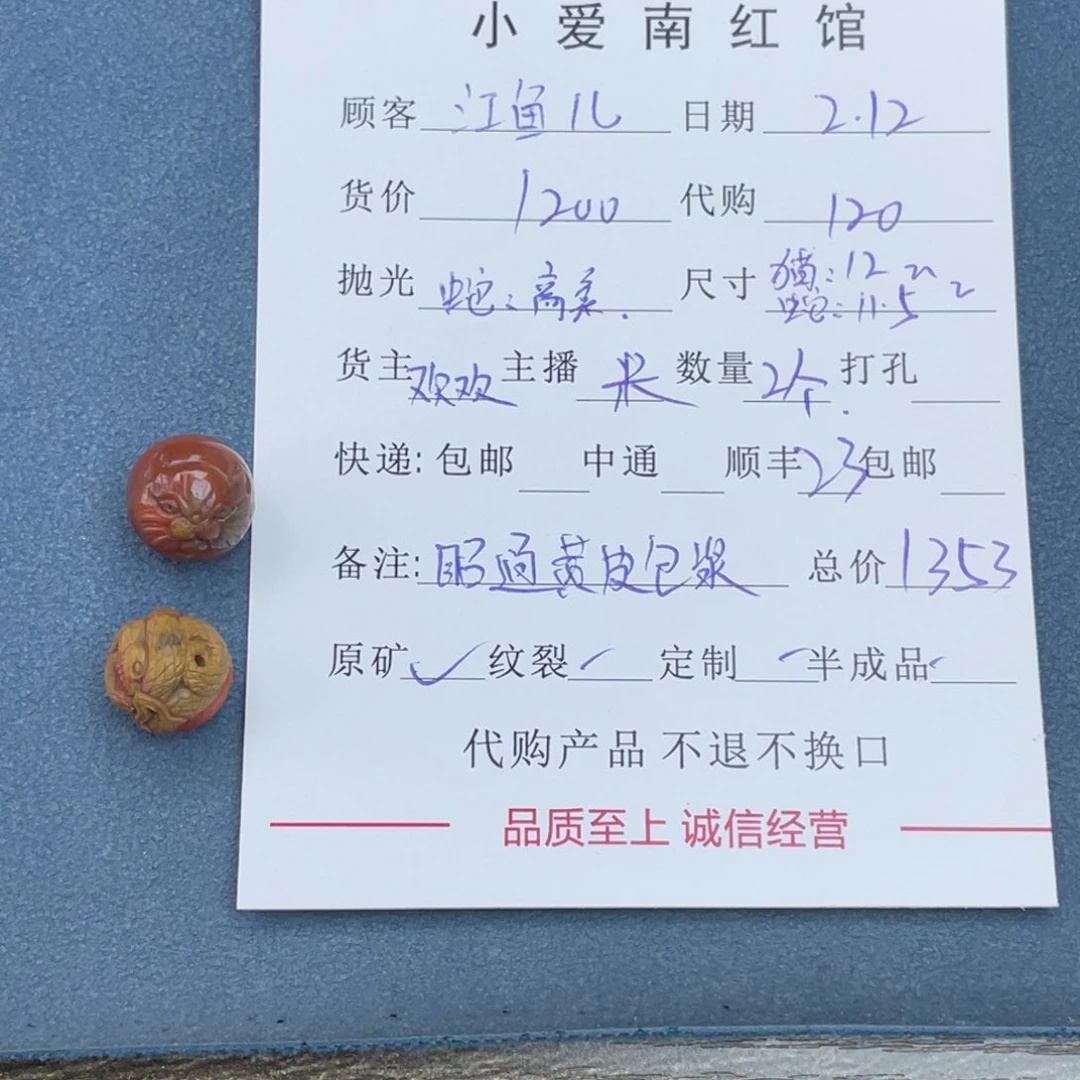 小爱南红馆
顾客 江鱼儿 日期 2.12
货价 1200 代购 120
抛光 蛇:高美. 尺寸 猫:12 蛇:11.5
货主 欢欢 主播 米 数量 2个. 打孔
快递: 包邮 中通 顺丰 23 包邮
备注: 昭通黄皮包浆 总价 1353
原矿 ✓ 纹裂 定制 半成品
代购产品 不退不换口
品质至上 诚信经营